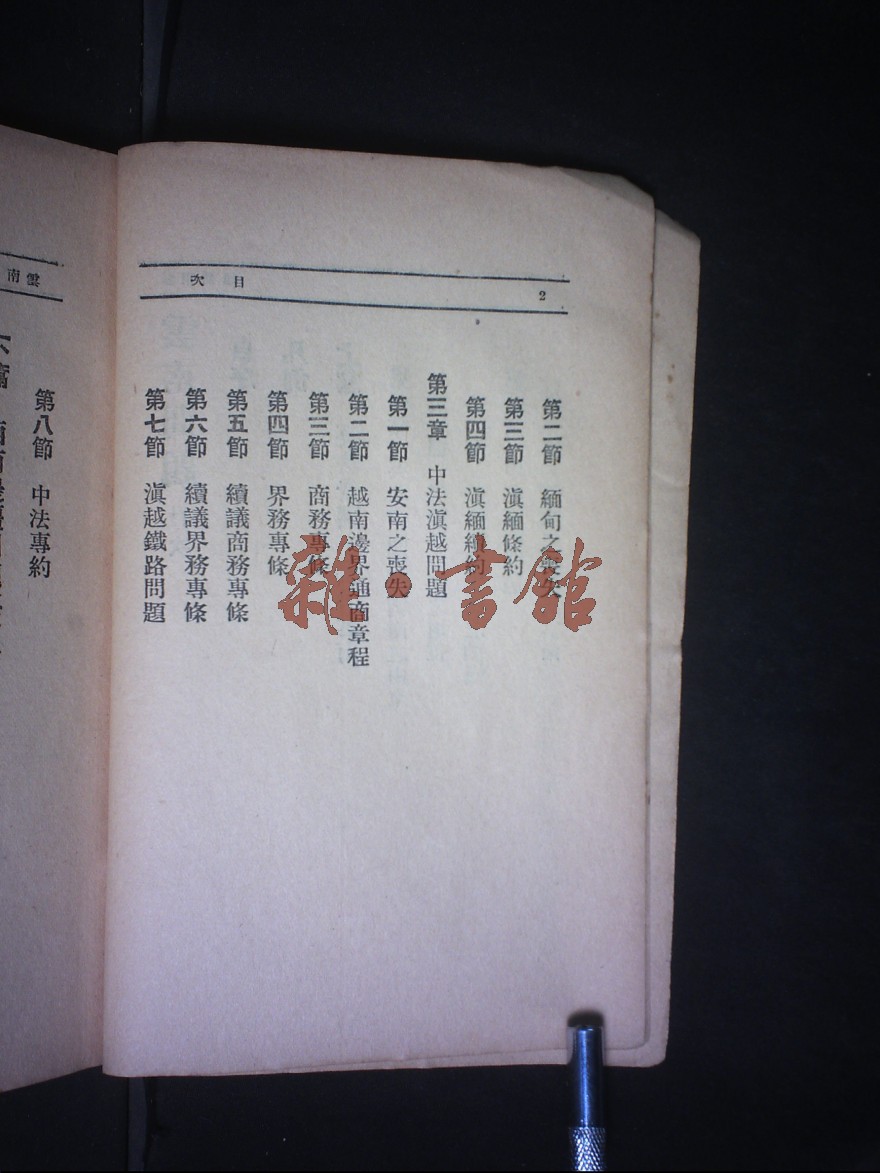 2
目次
第二節 緬甸之喪失
第三節 滇緬條約
第四節 滇緬續約
第三章 中法滇越問題
第一節 安南之喪失
第二節 越南邊界通商章程
第三節 商務專條
第四節 界務專條
第五節 續議商務專條
第六節 續議界務專條
第七節 滇越鐵路問題
雲南
第八節 中法專約
雜·書館